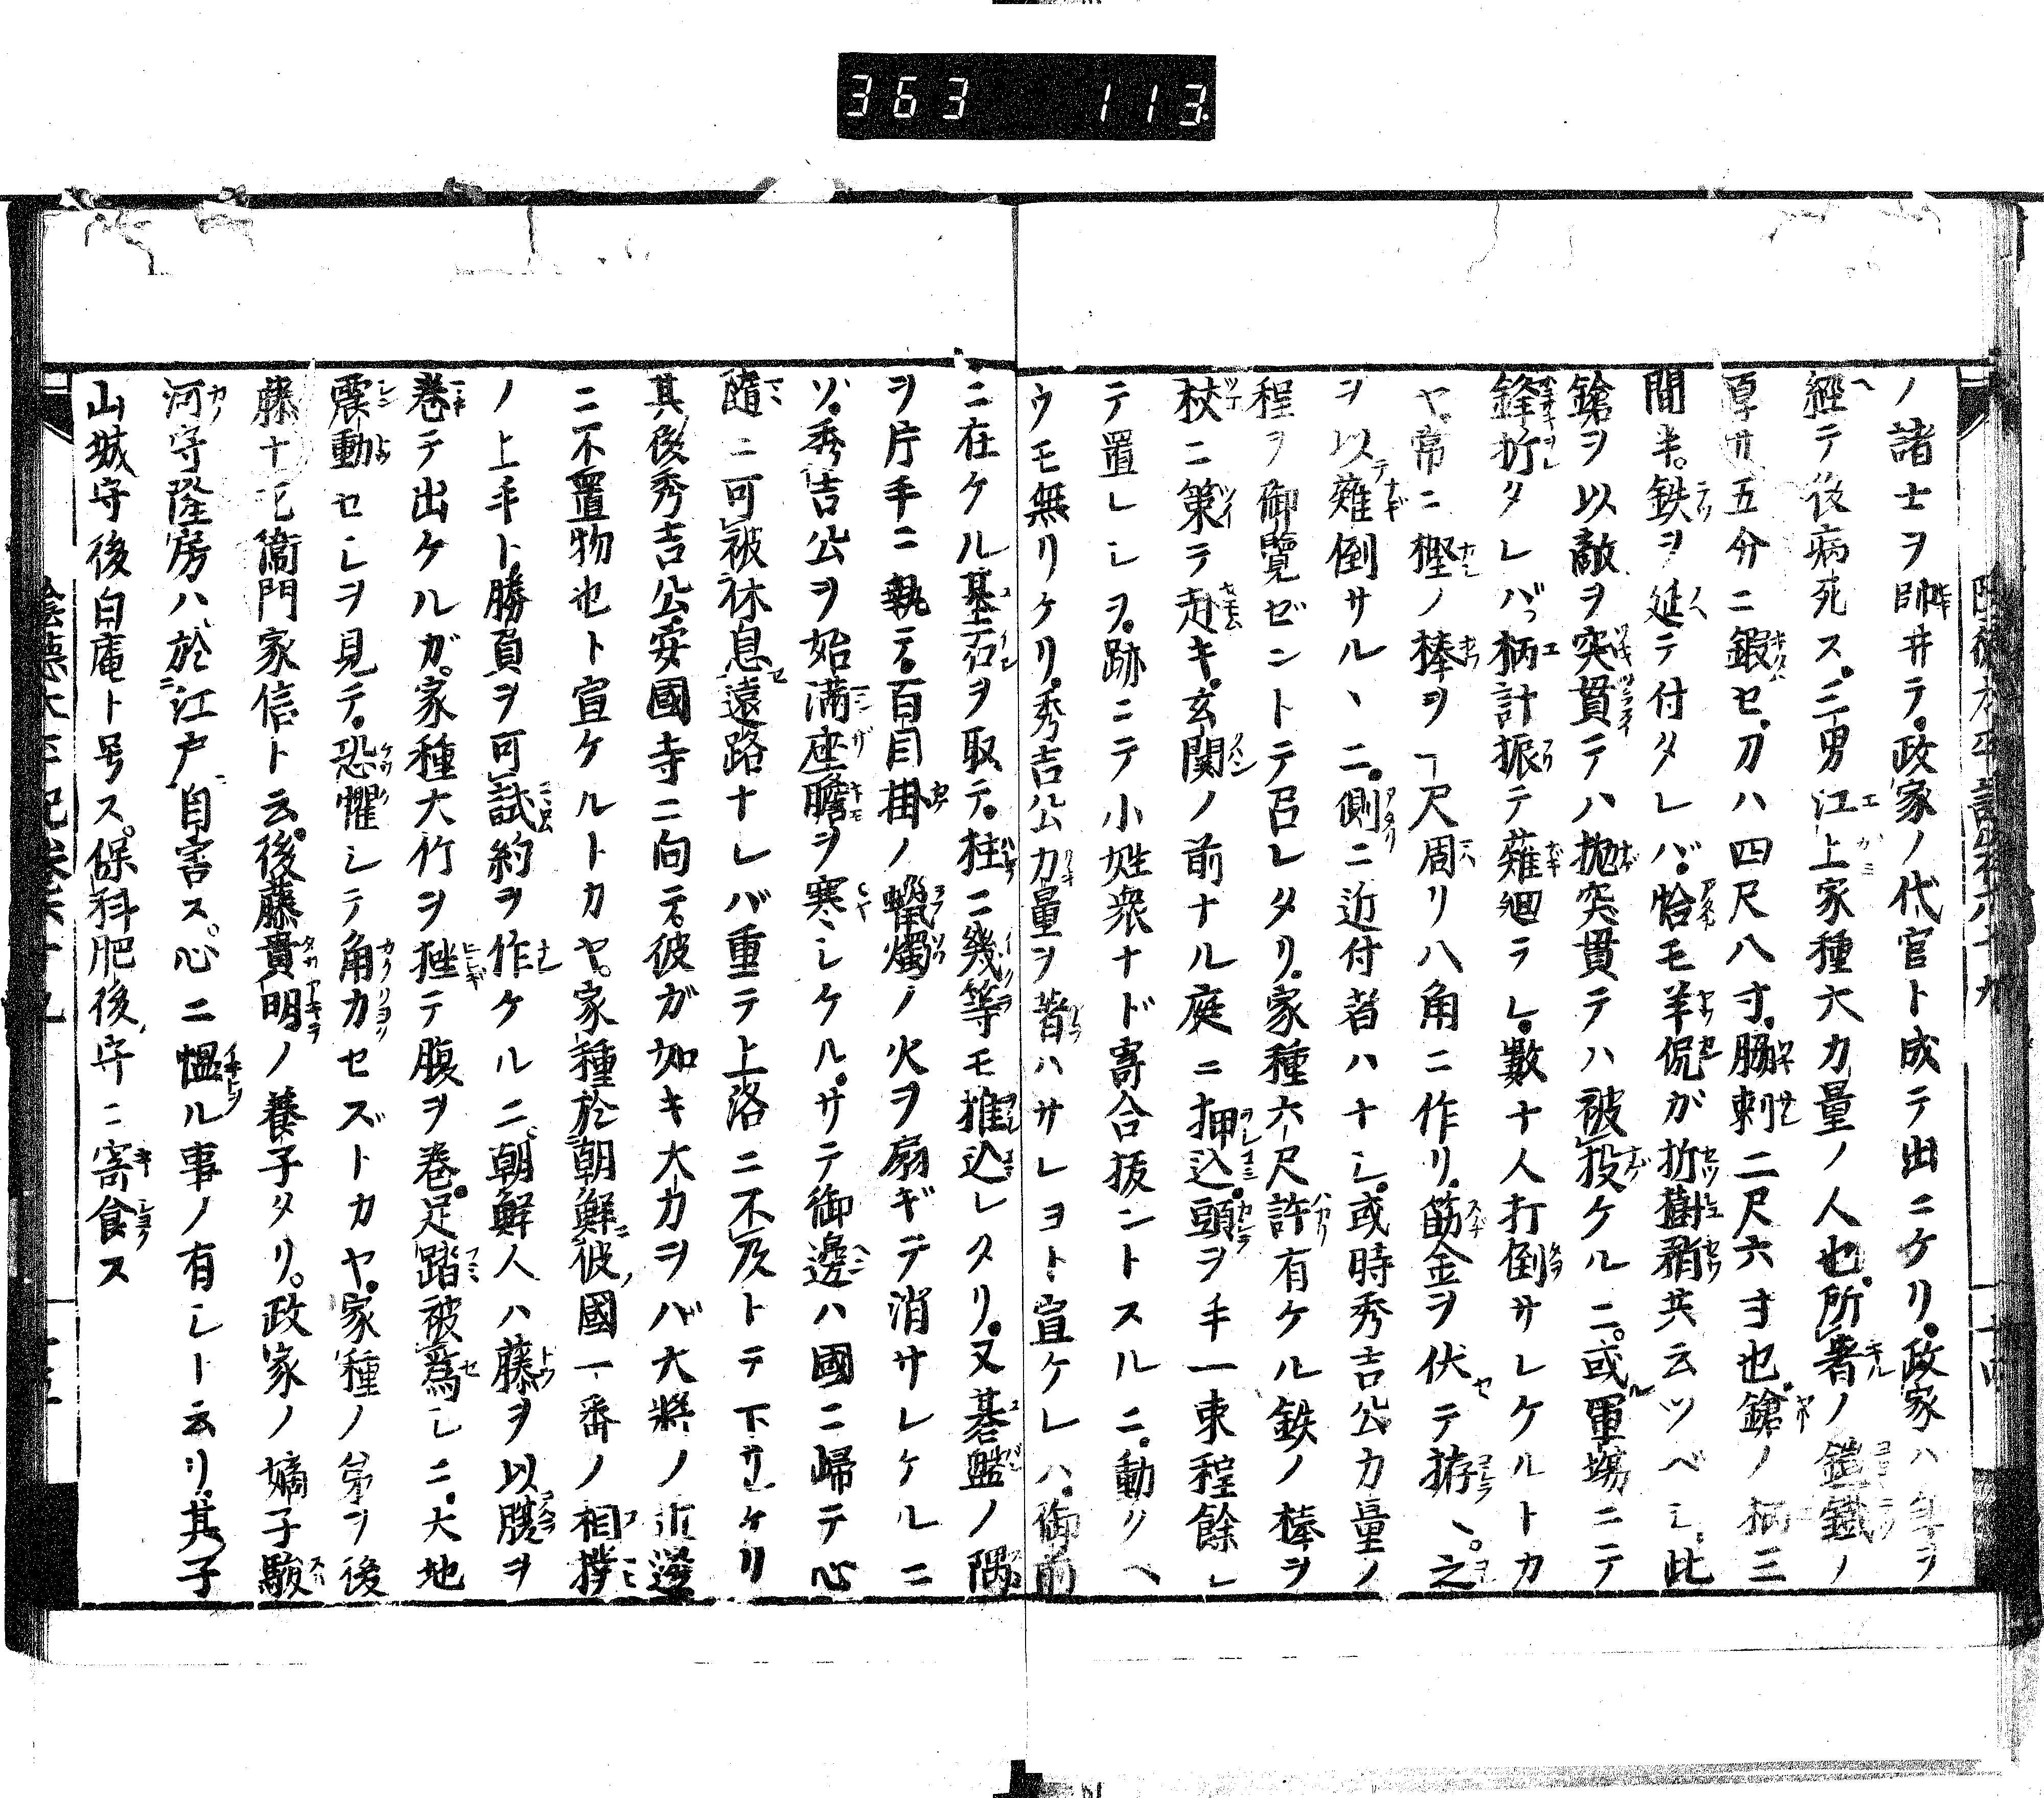 363 113
ノ諸士ヲ帥井テ。政家ノ代官ト成テ出ニケリ。政家ハ年ヲ
經テ後病死ス。三男江上家種大力量ノ人也。所著ノ鎧鐵ノ
厚サ五分ニ鍜セ。刀ハ四尺八寸。脇刺二尺六寸也。鎗ノ柄三
間半。鉄ヲ延テ付タレバ。恰モ羊侃ガ折樹矟共云ツベシ。此
鎗ヲ以敵ヲ突貫テハ抛突貫テハ被投ケルニ。或軍塲ニテ
鋒折タレバ。柄計振テ薙廻ラレ。數十人打倒サレケルトカ
ヤ。常ニ樫ノ棒ヲ一尺周リ八角ニ作リ。筋金ヲ伏テ拵ヘ。之
ヲ以薙倒サル丶ニ。側ニ近付者ハナシ。或時秀吉公力量ノ
程ヲ御覽ゼントテ召レタリ。家種六尺許有ケル鉄ノ棒ヲ
杖ニ策テ赴キ。玄関ノ前ナル庭ニ押込。頭ヲ手一束程餘シ
テ置レシヲ。跡ニテ小姓衆ナド寄合拔ントスルニ。動クヘ
ウモ無リケリ。秀吉公力量ヲ著ハサレヨト宣ケレハ。御前
ニ在ケル碁石ヲ取テ。柱ニ幾等モ推込レタリ。又碁盤ノ隅
ヲ片手ニ執テ。百目掛ノ蠟燭ノ火ヲ扇ギテ消サレケルニ
ゾ。秀吉公ヲ始満座膽ヲ寒シケル。サテ御邊ハ國ニ歸テ心
隨ニ可被休息遠路ナレバ重テ上洛ニ不及トテ下サレケリ
其後秀吉公安國寺ニ向テ。彼ガ如キ大力ヲバ大將ノ近邊
ニ不置物也ト宣ケルトカヤ。家種於朝鮮彼國一番ノ相撲
ノ上手ト。勝負ヲ可試約ヲ作ケルニ。朝鮮人ハ藤ヲ以腰ヲ
巻テ出ケルガ。家種大竹ヲ拉テ腹ヲ巻。足踏被爲シニ。大地
震動セシヲ見テ。恐懼シテ角力セズトカヤ。家種ノ弟ヲ後
藤十左衞門家信ト云。後藤貴明ノ養子タリ。政家ノ嫡子駿
河守隆房ハ。於江戸自害ス。心ニ慍ル事ノ有シト云リ。其子
山城守後自庵ト号ス。保科肥後守ニ寄食ス
陰德太平記卷六十九